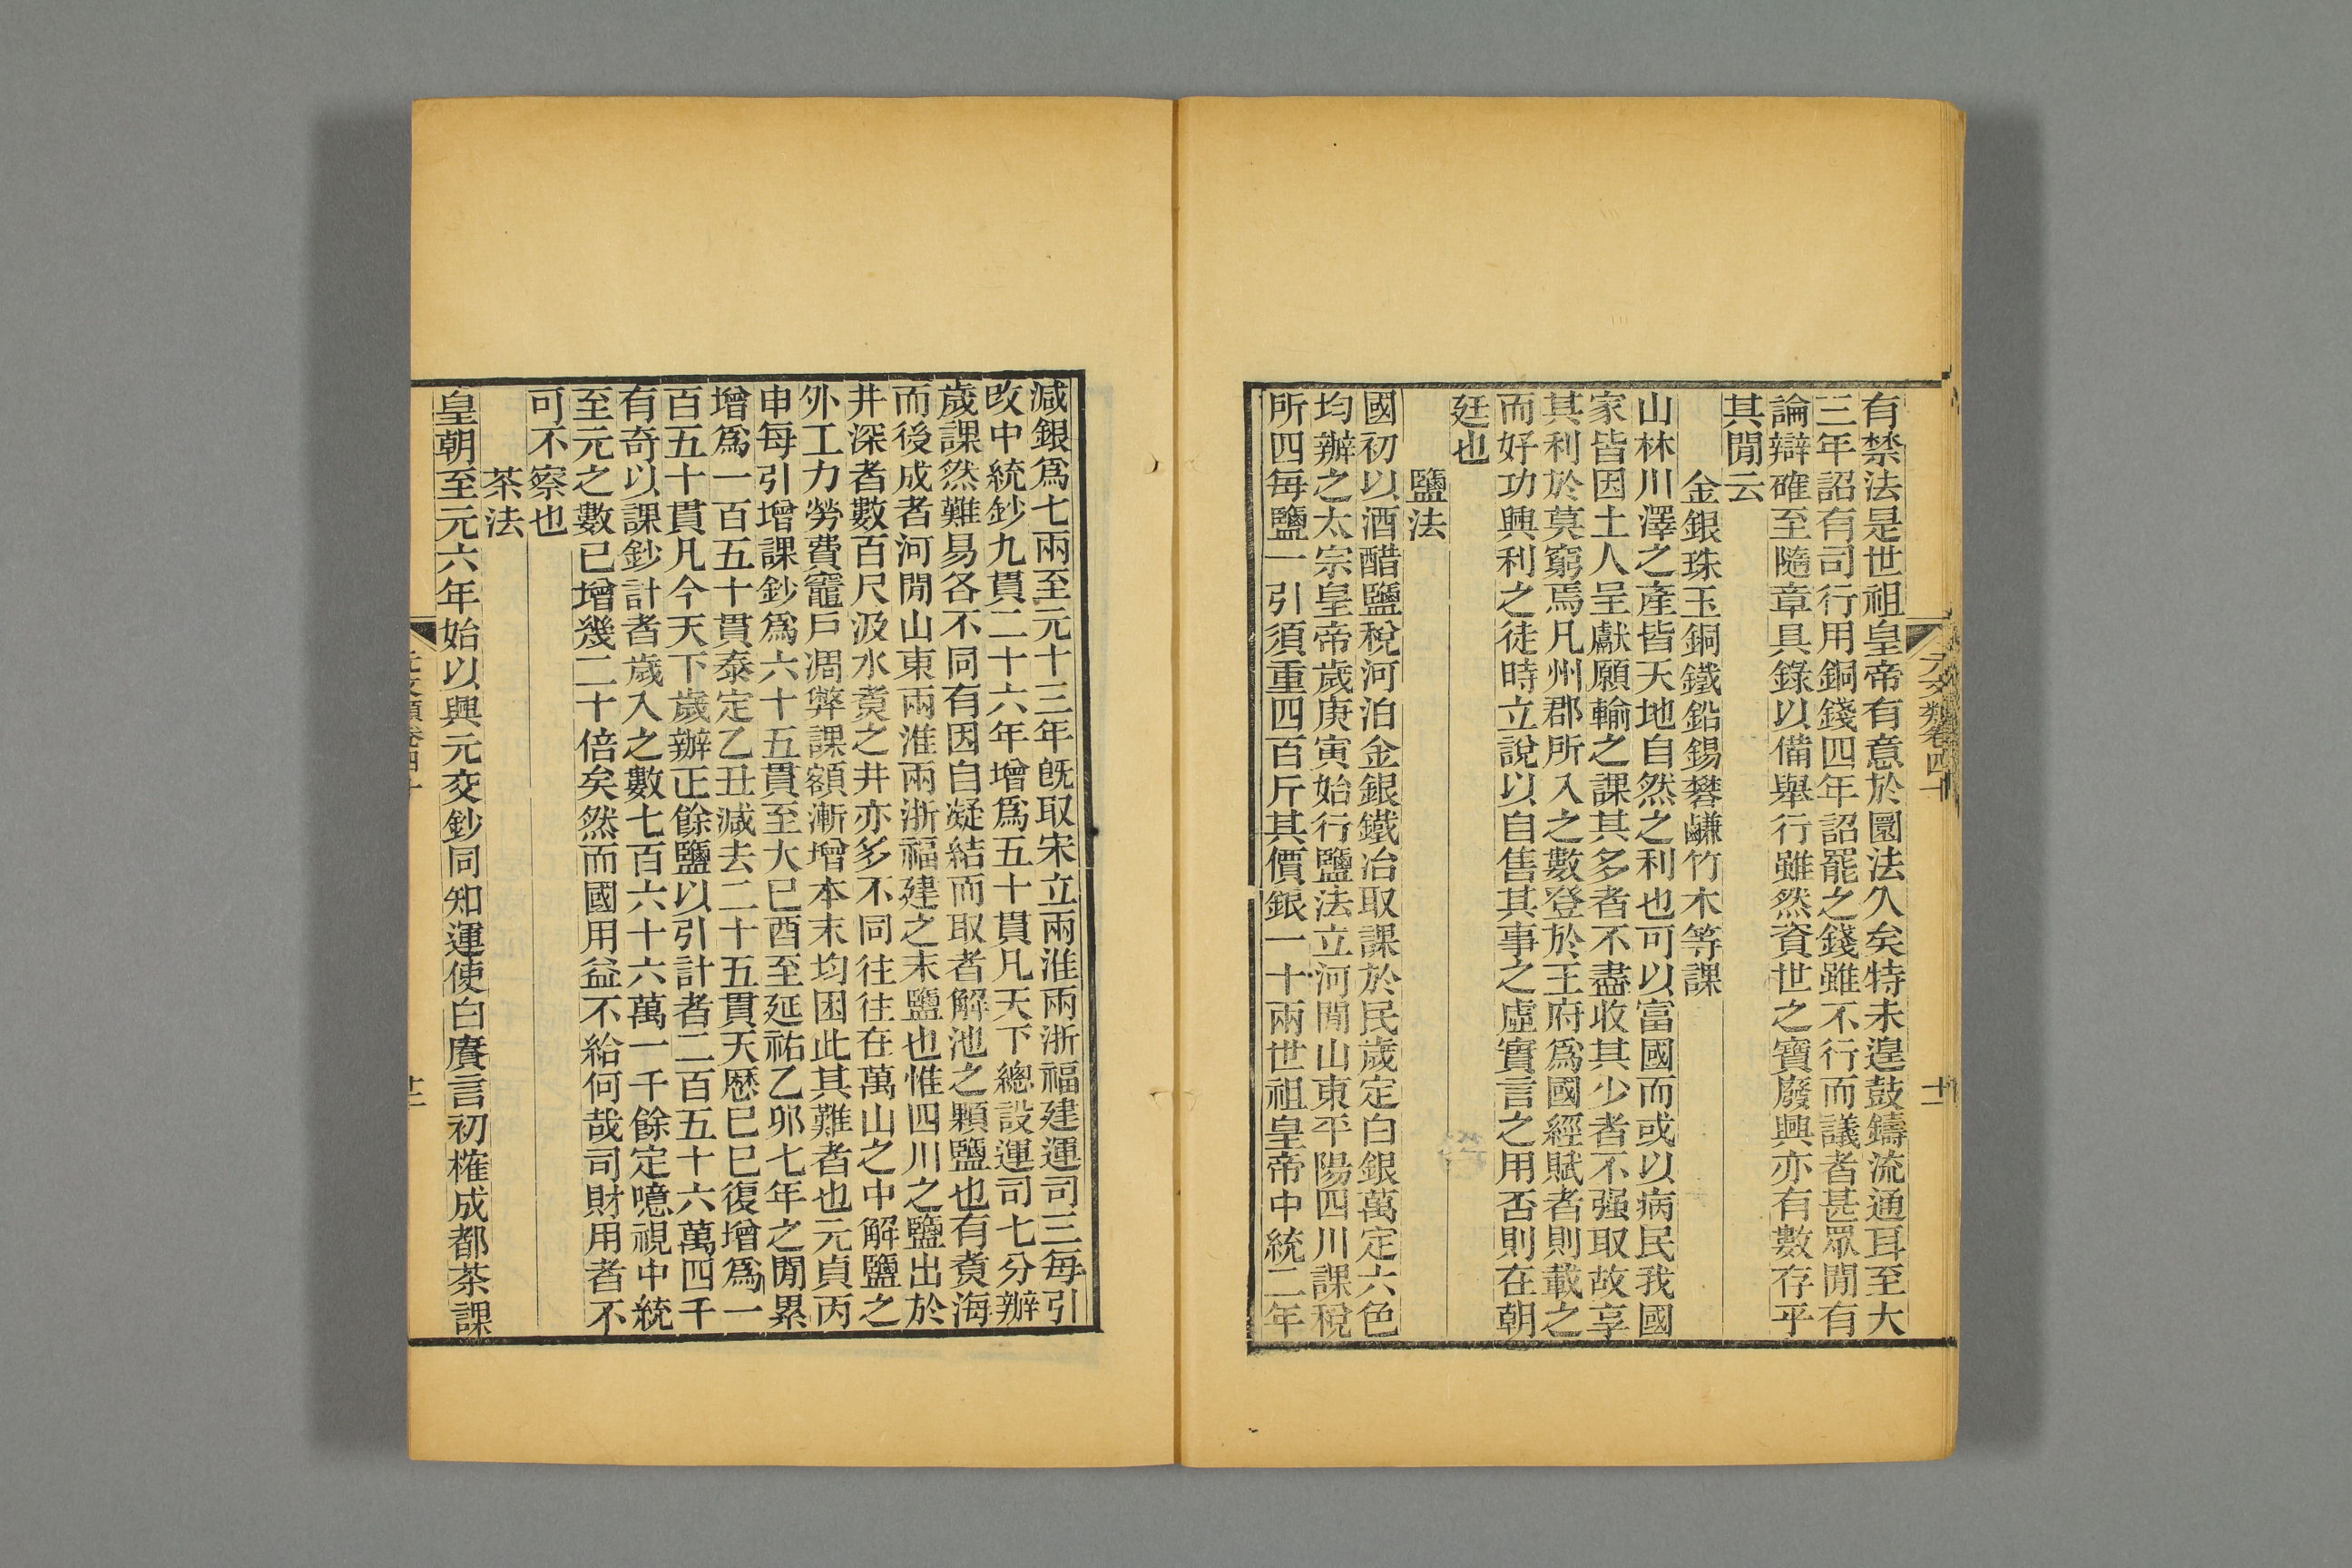 有禁法是世祖皇帝有意於圜法久矣特未遑鼓鑄流通耳至大
三年詔有司行用銅錢四年詔罷之錢雖不行而議者甚眾閒有
論辯確至隨章具錄以備舉行雖然資世之寶廢興亦有數存乎
其閒云
金銀珠玉銅鐵鉛錫礬鹻竹木等課
山林川澤之產皆天地自然之利也可以富國而或以病民我國
家皆因土人呈獻願輸之課其多者不盡收其少者不强取故享
其利於莫窮焉凡州郡所入之數登於王府爲國經賦者則載之
而好功興利之徒時立說以自售其事之虛實言之用否則在朝
廷也
鹽法
國初以酒醋鹽稅河泊金銀鐵冶取課於民歲定白銀萬定六色
均辦之太宗皇帝歲庚寅始行鹽法立河閒山東平陽四川課稅
所四每鹽一引須重四百斤其價銀一十兩世祖皇帝中統二年
元文類卷四十
十一
減銀爲七兩至元十三年旣取宋立兩淮兩浙福建運司三每引
改中統鈔九貫二十六年增爲五十貫凡天下總設運司七分辦
歲課然難易各不同有因自凝結而取者解池之顆鹽也有煑海
而後成者河閒山東兩淮兩浙福建之末鹽也惟四川之鹽出於
井深者數百尺汲水煑之井亦多不同往往在萬山之中解鹽之
外工力勞費竈戶凋弊課額漸增本末均困此其難者也元貞丙
申每引增課鈔爲六十五貫至大己酉至延祐乙卯七年之閒累
增爲一百五十貫泰定乙丑減去二十五貫天歷己巳復增爲一
百五十貫凡今天下歲辦正餘鹽以引計者二百五十六萬四千
有奇以課鈔計者歲入之數七百六十六萬一千餘定噫視中統
至元之數已增幾二十倍矣然而國用益不給何哉司財用者不
可不察也
茶法
皇朝至元六年始以興元交鈔同知運使白賡言初榷成都茶課